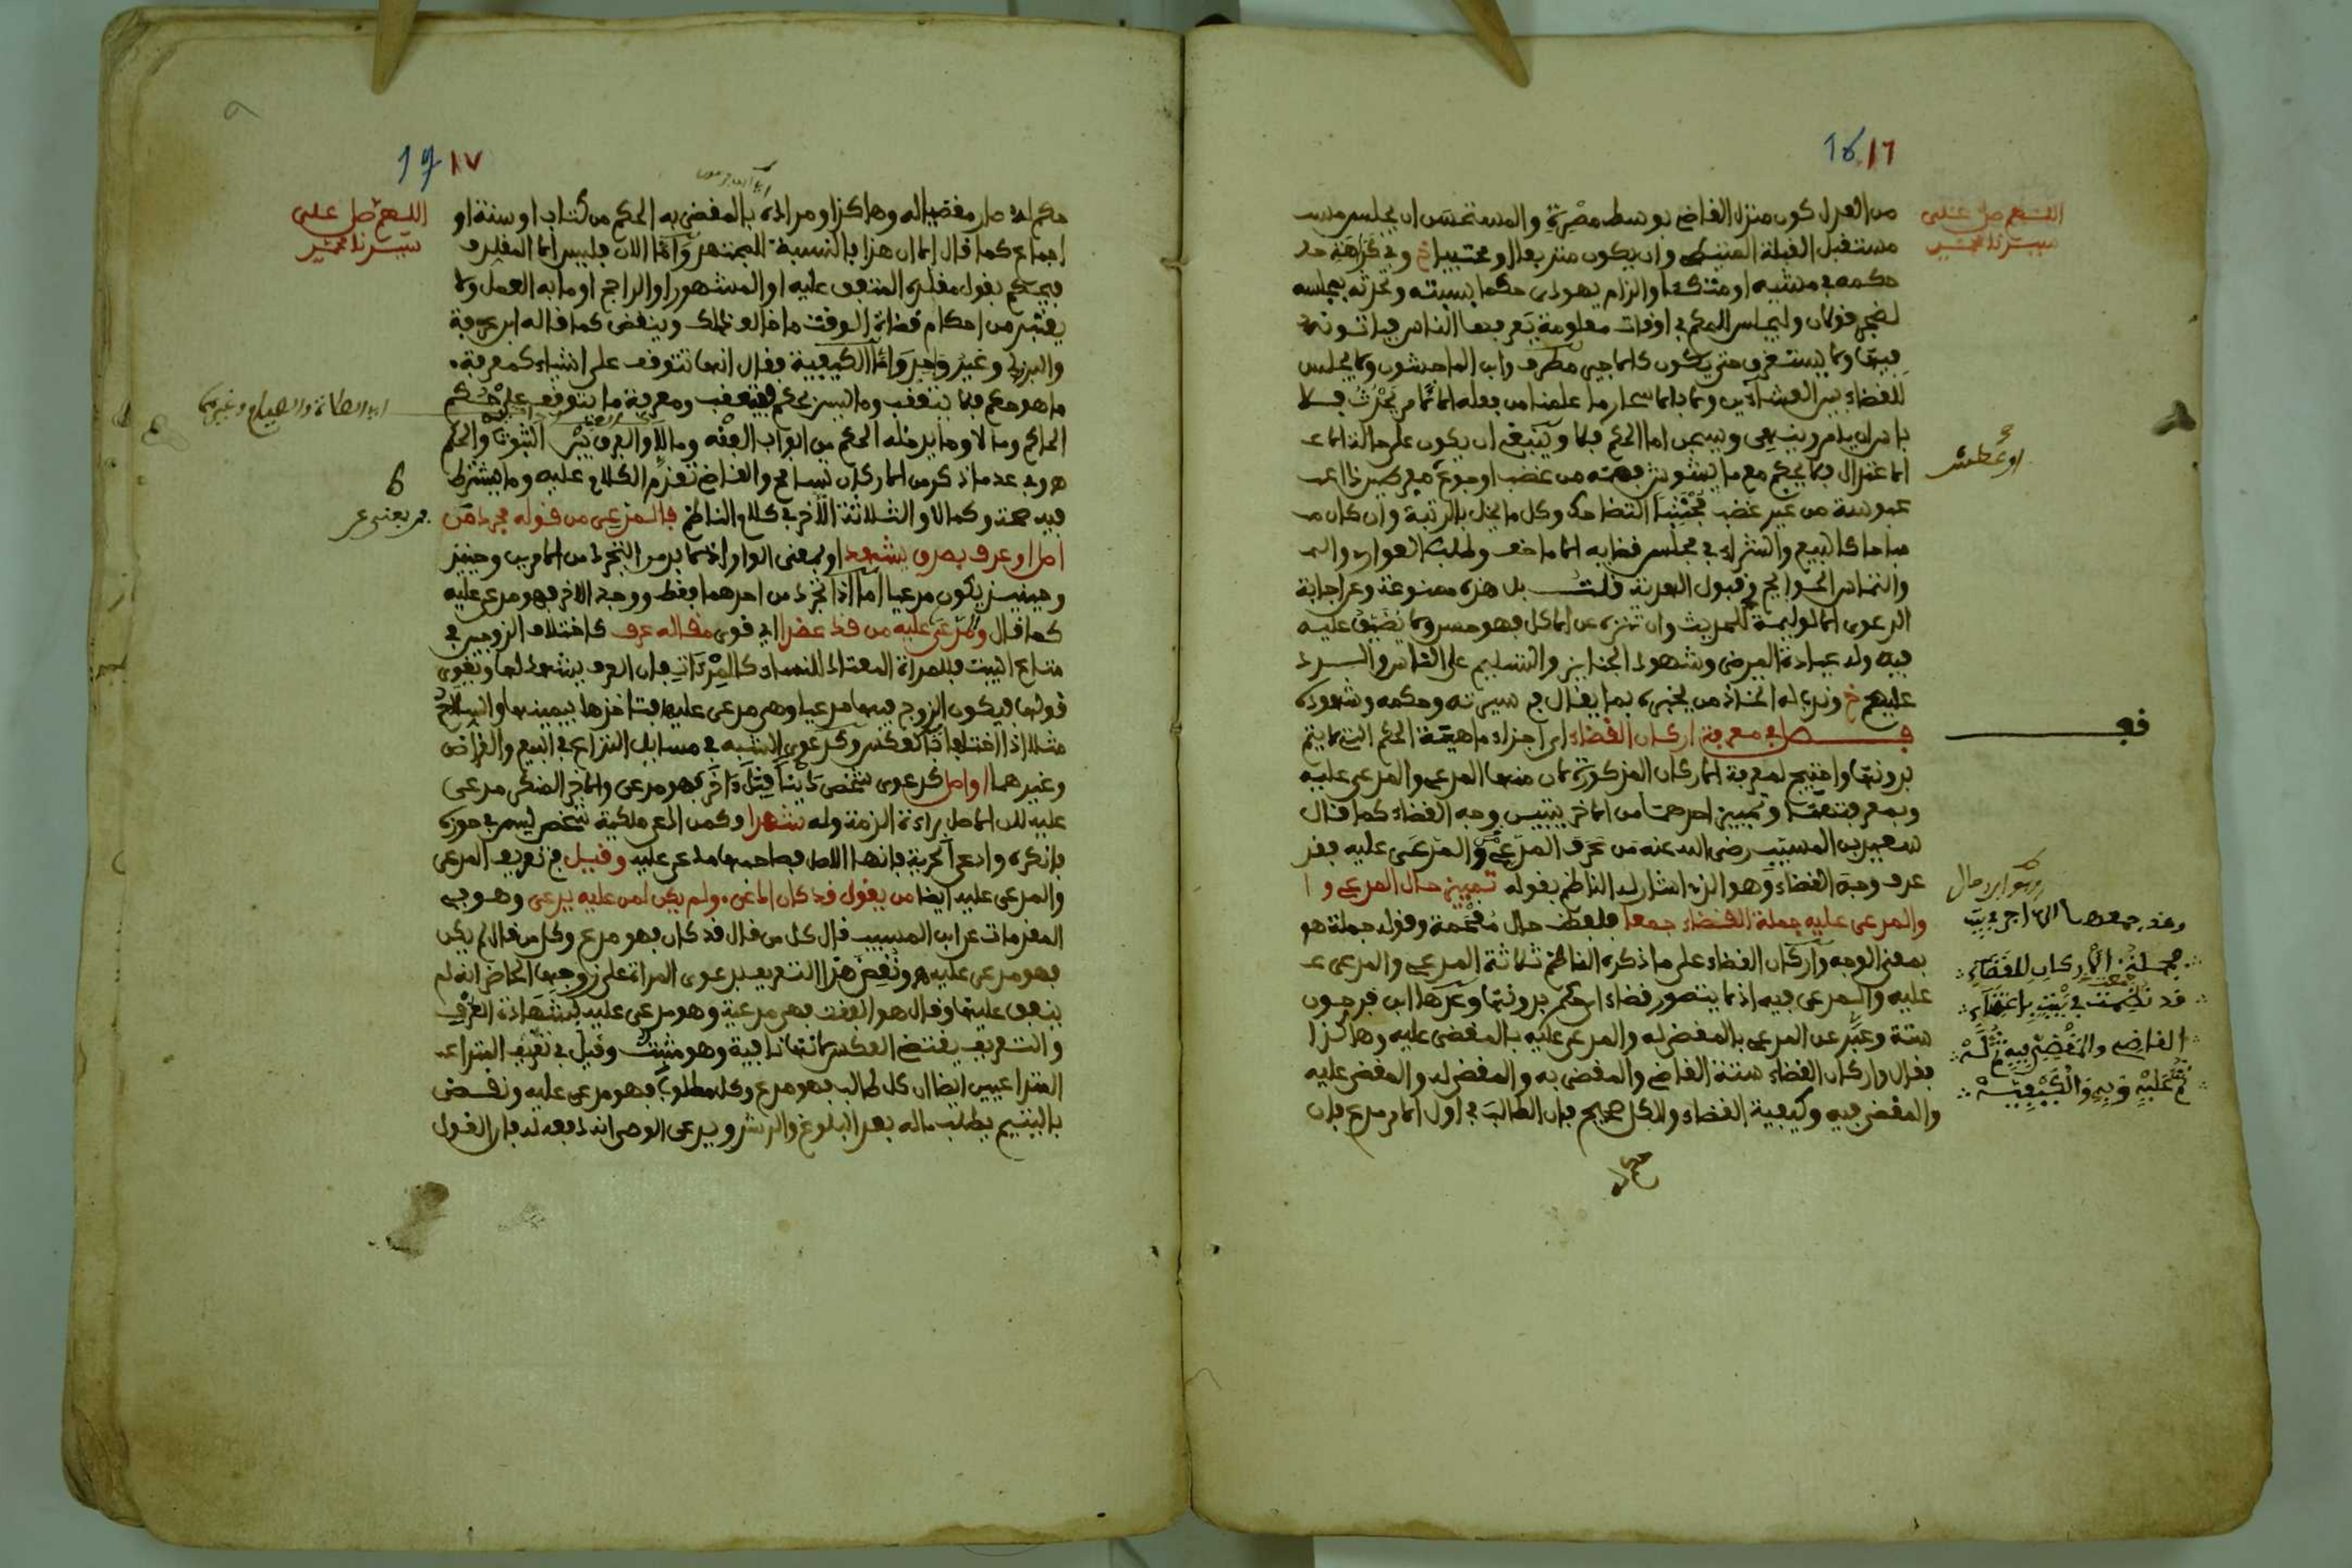 16 ١٦
اللهم صل على
سيدنا محمد
من العدل كون منزل القاضي بوسط مصره والمستحسن ان يجلس
مستقبل القبلة وان يكون متربعا او محتبيا خ وفي كراهة
حكمه في مشيه او متكئا والزام يهودي حكما بسبته وتحدثه بمجلسه
لضجر قولان وليجلس للحكم في اوقات معلومة يعرفها الناس فياتونه
فيها ولا يستغرق حتى يكون كالاجير مطرف وابن الماجشون ولا يجلس
للقضاء بين العشاءين ولا بالاسحار ما علمنا من فعله الا لامر يحدث فلا
باس ان يامر وينهى ويسجن اما الحكم فلا وينبغي ان يكون على حالة
الاعتدال فلا يحكم مع ما يشوش من غضب او جوع
او عطش
عبوسة من غير غضب مجتنبا وكل ما يخل بالرتبة وان كان
مباحا كالبيع والشراء في مجلس قضايه الا ما خف وطلب العواري
والتماس الحوايج وقبول الهدية قلت بل هذه ممنوعة وعن اجابة
الدعوى الا لوليمة للحديث وان تنزه عن الاكل فهو حسن ولا يضيق عليه
فيه وله عيادة المرضى وشهود الجنايز والتسليم على الناس والرد
عليهم خ وندب له اتخاذ من يخبره بما يقال في سيرته وحكمه وشهوده
فصل في معرفة اركان القضاء اي اجزاء ماهية الحكم التي لا يتم
بدونها واحتيج لمعرفة الاركان المذكورة لان منها المدعي والمدعى عليه
وبمعرفتهما وتمييز احدهما من الاخر يتبين وجه القضاء كما قال
سعيد بن المسيب رضي الله عنه من عرف المدعي من المدعى عليه فقد
عرف وجه القضاء وهو الذي اشار له الناظم بقوله تمييز حال المدعي و
والمدعى عليه جملة القضاء جمعا فلفظ حال مقحمة وقوله جملة هو
بمعنى الوجه واركان القضاء على ما ذكره الناظم ثلاثة المدعي والمدعى
عليه والمدعى فيه اذ لا يتصور قضاء اي حكم بدونها وعدها ابن فرحون
ستة وعبر عن المدعي بالمقضي له والمدعى عليه بالمقضي عليه وهاكذا
فقال واركان القضاء ستة القاضي والمقضي به والمقضي له والمقضي عليه
والمقضي فيه وكيفية القضاء والكل صحيح فان الطالب في اول الامر مدع فان
وقد جمعها
جملة الاركان للقضاء
قد نظمت في بيت باعتناء
القاضي والمقضي فيه ثم له
ثم عليه وبه والكيفية
17 ١٧
اللهم صل على
سيدنا محمد
حكم له صار مقضيا له وهاكذا ومراده بالمقضي به الحكم من كتاب او سنة او
اجماع كما قال الا ان هذا بالنسبة للمجتهد واما الان فليس الا المقلد
فيحكم بقول مقلده المتفق عليه او المشهور او الراجح او ما به العمل ولا
يعتبر من احكام قضاة الوقت ما خالف ذلك وينقض كما قاله ابن عرفة
والبرزلي وغير واحد واما الكيفية فقال انها تتوقف على اشياء كمعرفة
ما هو حكم فلا يتعقب وما ليس بحكم فيتعقب ومعرفة ما يتوقف على حكم
اي الصلاة والصيام وغيرهما
الحاكم وما لا وما يدخله الحكم من ابواب الفقه وما لا والفرق بين الثبوت والحكم
وفي عد ما ذكر من الاركان تسامح والقاضي تقدم الكلام عليه وما يشترط
فيه صحة وكمالا والثلاثة الاخر في كلام الناظم فالمدعي من قوله مجرد من
اصل او عرف بصدق يشهد او بمعنى الواو اذ لا بد من التجرد من الامرين وحينئذ
وحينئذ يكون مدعيا اما اذا تجرد من احدهما فقط ووجد الاخر فهو مدع عليه
كما قال والمدعى عليه من قد عضدا اي قوى مقاله عرف كاختلاف الزوجين في
متاع البيت فللمراة المعتاد للنساء فان العرف يشهد لها ويقوي
قولها فيكون الزوج فيها مدعيا وهي مدعى عليها فتاخذها بيمينها والسلاح
مثلا اذا اختلفا فالعكس وكدعوى الشبه في مسايل النزاع في البيع والقراض
وغيرهما او اصل كدعوى شخص دينا قبل اخر فهو مدعي والاخر المنكر مدعى
عليه لان الاصل براءة الذمة وله شهدا وكمن ادعى ملكية شخص ليس في حوزه
فانكره وادعى الحرية فانها الاصل فصاحبها مدعى عليه وقيل في تعريف المدعي
والمدعى عليه ايضا من يقول قد كان ادعى ولم يكن لمن عليه يدعى وهو في
المقدمات عن ابن المسيب قال كل من قال قد كان فهو مدع وكل من قال لم يكن
فهو مدعى عليه ونقض هذا التعريف بدعوى المراة على زوجها الحاضر انه لم
ينفق عليها وقال هو انفقت فهي مدعية وهو مدعى عليه لشهادة العرف
والتعريف يقتضي العكس لانها نافية وهو مثبت وقيل في تعريف
المتداعيين ايضا ان كل طالب فهو مدع وكل مطلوب فهو مدعى عليه ونقض
باليتيم يطلب ماله بعد البلوغ والرشد ويدعي الوصي انه دفعه له فان القول